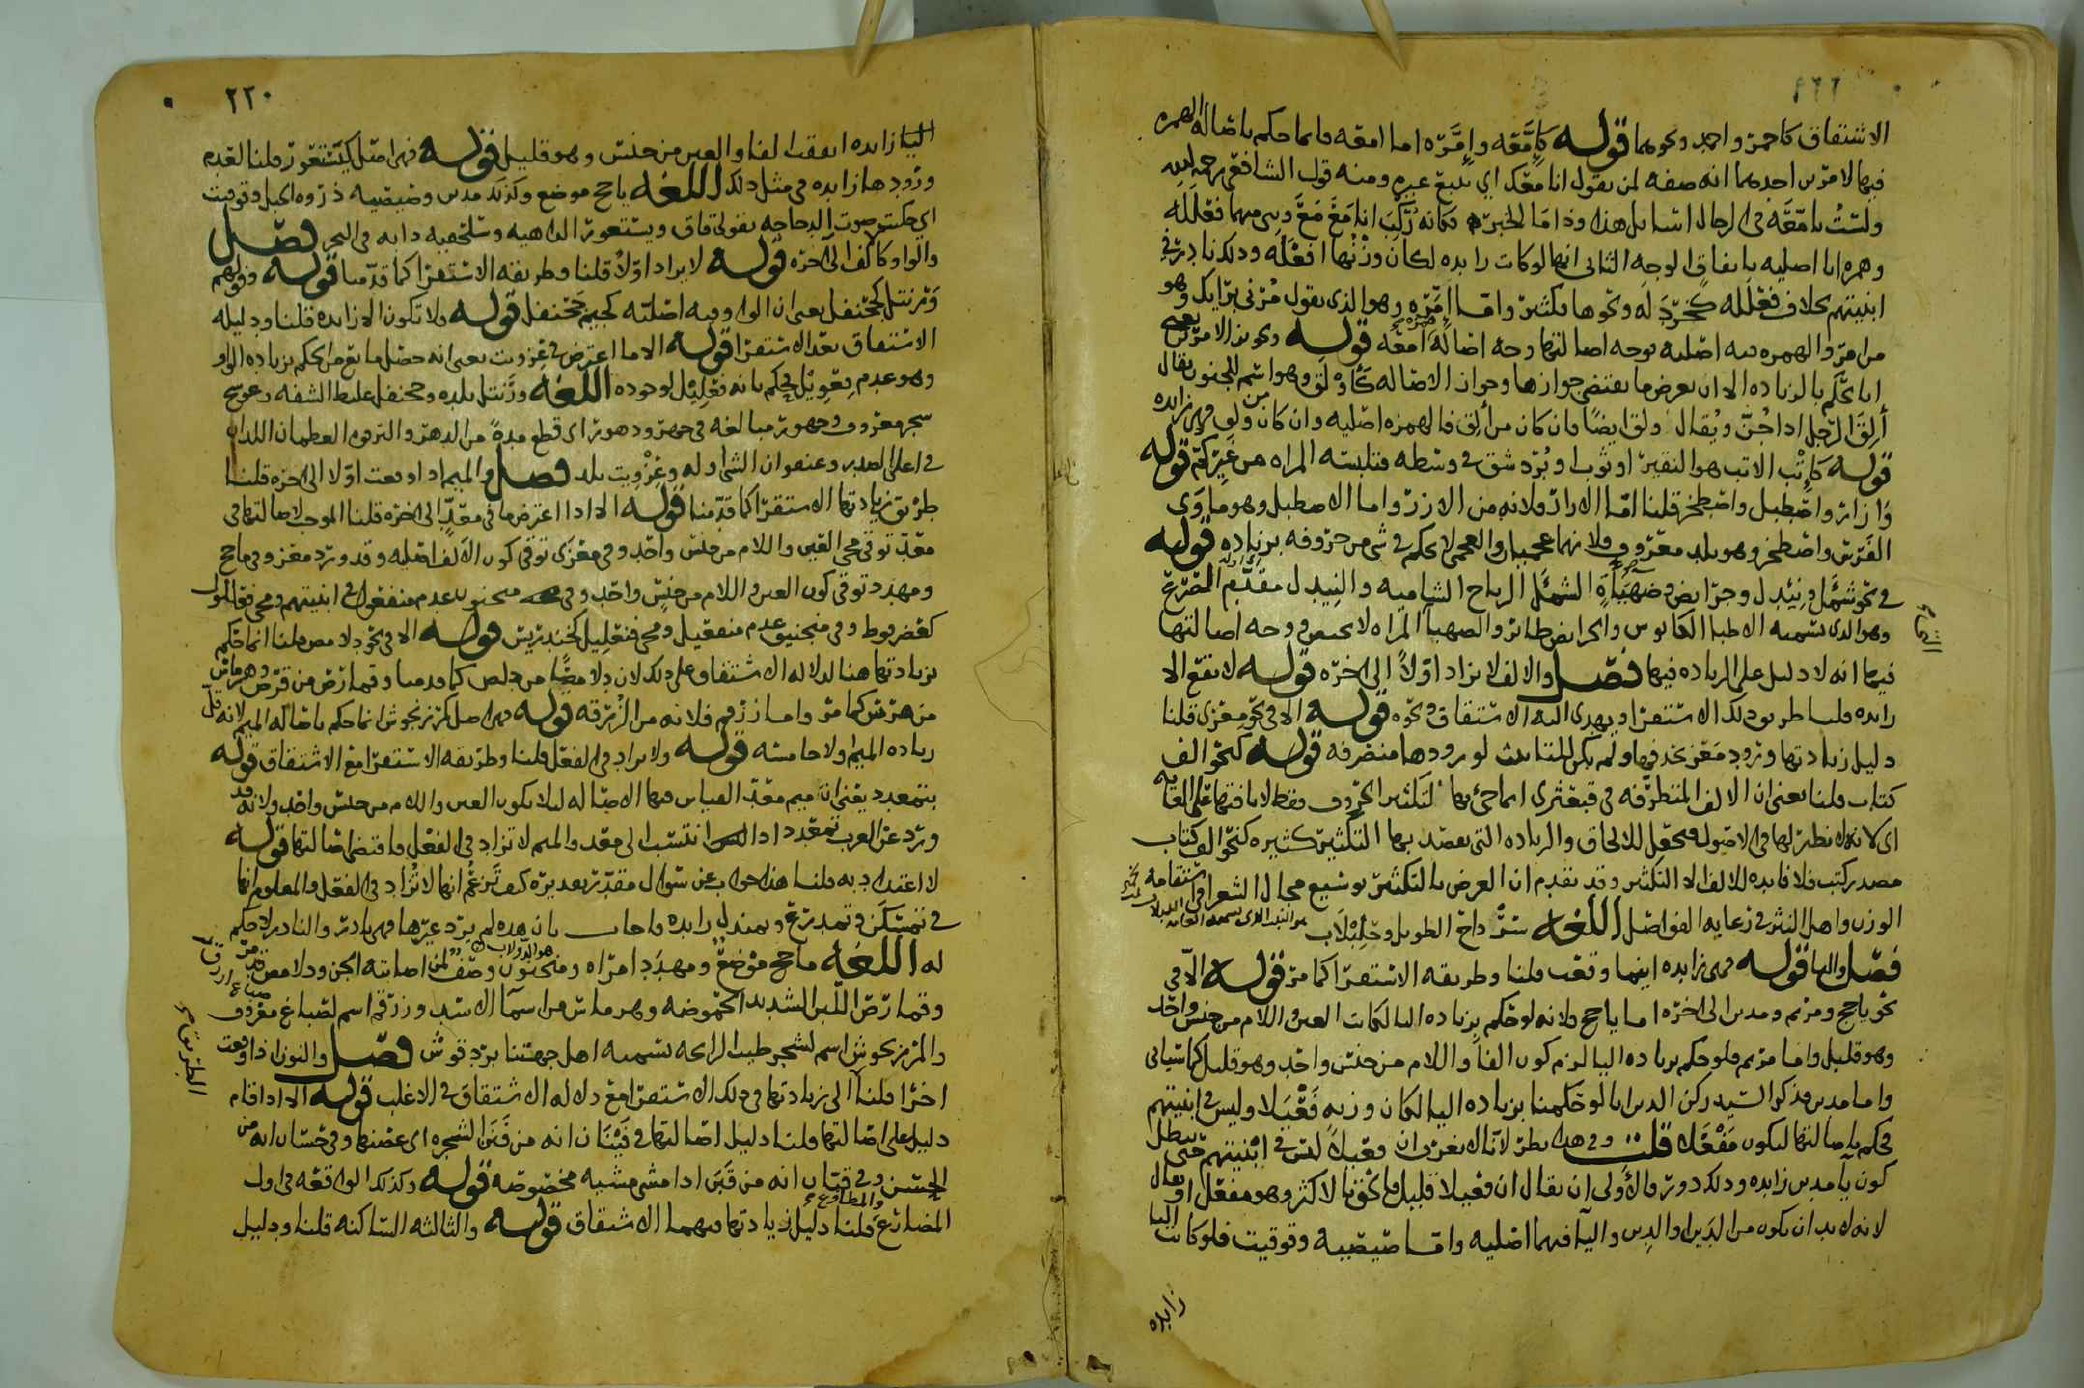 الاشتقاق كاحمر واحمد ونحوهما قوله كإمَّعه وإمَّرَه اما امعه فانما حكم باصاله الهمزه
فيها لامرين احدهما انه صفه لمن يقول انا معك اي يتبع غيره ومنه قول الشافعي رحمه الله
ولستُ بامّعَّه في الرجال اسايل هذا وذا ما الخبر فكانه رُكِّبَ
وهمزه اما اصليه باتفاق الوجه الثاني انها لو كانت زايده لكان وزنها افعَلَه وذلك نادر في
ابنيتهم بخلاف فعّلَله ونحوها فكثير واما اِمّرَه وهو الذي يقول مُرني برايك وهو
من امر والهمزه فيه اصليه بوجه اصالتها وجه اصالة امعه قوله
اما بحكم بالزياده الا ان يعرض ما يقتضي جوازها وجواز الاصاله كأَوْلَق وهو اسم للجنون يقال
أُلِقَ الرجل اذا جُنَّ ويُقال وَلق ايضًا فان كان من أَلِق فالهمزه اصليه وان كان من وَلق فهي زايده
قوله كإِتْب الاتب هو البقيره او ثوب او بُرد شق في وسطه فتلبسه المراه من غير كم قوله
وازار واصطبل واصطخر قلنا امّا الازار فلانه من الازر واما الاصطبل وهو ماوى
الفرس واصطخر وهو بلد معروف فلانهما عجميان والعجمي لا يحكم في شي من حروفه بزياده قوله
في نحو شَمْأَل ونِئْدِل وجُرَائض وضَهْيَأَة الشمأل الرياح الشاميه والنيدل
وهو الذي تسميه الاطبا الكابوس والجرايض طاير والضهيا المراه لا تحيض ووجه اصالتها
فيها انه لا دليل على الزياده فيها فصل والالف لا تزاد اولًا الى اخره قوله لا تقع الا
زايده قلنا طريق ذلك الاستقرا ويهدي اليه الاشتقاق ونحوه قوله الا في نحو مِعْزى قلنا
دليل زيادتها ورود مَعْز نجد فيها ولم يكن للتانيث لورودها منصرفه قوله كنحو الف
كتاب قلنا يعني ان الالف المتطرفه في قبعثرى انما جيء بها لتكثير الحروف فقط لا بافتها على الغايه
اي لانه لا نظير لها في الاصول فجعل للالحاق والزياده التي يقصد بها التكثير كثيره كنحو الف كتاب
مصدر كتب فلا فايده للالف الا التكثير وقد تقدم ان الغرض بالتكثير توسيع مجال الشعرا في استقامه
الوزن واهل النثر في رعايه الفواصل اللغه سِرْداح الطويل وحِلِبْلاب
فصل واليا قوله فهي زايده اينما وقعت قلنا وطريقه الاستقرا كما مر قوله الا في
نحو ياجج ومريم ومدين الى اخره اما ياجج فلانه لو حكم بزياده اليا لكانت العين واللام من جنس واحد
وهو قليل واما مريم فلو حكم بزياده اليا لزم كون الفا واللام من جنس واحد وهو قليل كما سياتي
واما مدين فذكر السيد ركن الدين انا لو حكمنا بزياده اليا لكان وزنه فَعْيَلا وليس في ابنيتهم
فحكم باصالتها ليكون مَفْعَلا قلت وفي هذا نظر لانا لا نعرف ان فعيلا ليس في ابنيتهم حتى يبطل
كون يا مدين زايده وذلك دور فالاولى ان يقال ان فعيلا قليل فالحقوها الاكثر وهو مفعل او يقال
لانه لا بد ان يكون من الدين او الدين واليا فيهما اصليه واما صيصيه وقوقيت فلو كانت اليا
زايده
٢٢٠
اليا زايده اتفقت الفا والعين من جنس وهو قليل قوله فهي اصل كيَسْتعور قلنا لعدم
ورودها زايده في مثل ذلك اللغه ياجج موضع وكذلك مدين وصيصيه ذروه الجبل وقوقيت
اي حكيت صوت الدجاجه يقول قاق ويستعور الداهيه وسلحفيه دابه في البحر فصل
والواو كالف الى اخره قوله لا يزاد اولًا قلنا وطريقه الاستقرا كما قدمنا قوله وقولهم
وَرَنتل كجحنفل يعني ان الواو فيه اصليه كجيم جحنفل قوله ولا تكون الا زايده قلنا ودليله
الاشتقاق بعد الاستقرا قوله الا ما اعترض في غزويت يعني انه حصل مانع من الحكم بزياده الواو
وهو عدم فِعْوِيْل فيحكم بانه فِعْلِيْل لوجوده اللغه ورَنتل بلده وجحنفل غليظ الشفه وعوسج
شجر معروف وجهور مبالغه في جهر ودهور اي قطع مدة من الدهر والترقوه العظمان اللذان
في اعلى الصدر وعنفوان الشي اوله وغِزْويت بلد فصل والميم اذا وقعت اولا الى اخره قلنا
طريق زيادتها الاستقرا كما قدمنا قوله الا اذا اعترض ما في معَدٍّ الى اخره قلنا الموجب لاصالتها في
معدّ توقي مجي العين واللام من جنس واحد وفي مِعْزَى توقي كون الالف اصليه وقد ورد معز وفي ماجج
ومهدد توقي كون العين واللام من جنس واحد وفي منجنون عدم منفعول في ابنيتهم ومجي فعللول
كعضرفوط وفي منجنيق عدم منفعيل ومجي فنعليل كخندريس قوله الا في نحو دلامص قلنا انما حكم
بزيادتها هنا لدلاله الاشتقاق على ذلك لان دلامصًا من دلص كما قدمنا وقمارص من قرص وهرماس
من هرس كما مر واما زرقم فلانه من الزُّرقه قوله فهي اصل كمرزنجوش انما حكم باصاله الميم لانه قل
زياده الميم ولا خامسه قوله ولا يزاد في الفعل قلنا وطريقه الاستقرا مع الاشتقاق قوله
بتمعدد يعني ان ميم معدّ القياس فيها الاصاله ليلا يكون العين واللام من جنس واحد ولانه قد
ورد عن العرب تمعدد اذا انتسب الى معد والميم لا تزاد في الفعل فاقتضى اصالتها قوله
لا اعتداد به قلنا هذا جواب عن سوال مقدّر تقديره كيف تزعم انها لا تُزاد في الفعل والمعلوم انها
في تمسكن وتمدرع وتمندل زايده فاجاب بان هذه لم يرد غيرها فهي نادر والنادر لا حكم
له اللغه ماجج موضع ومهدد امراه ومنجنون وصف لمن اصابته الجن ودلامص
وقمارص اللبن الشديد الحموضه وهرماس من اسما الاسد وزرقم اسم لصباغ معروف
والمرزنجوش اسم لشجر طيب الرايحه تسميه اهل جهتنا بردقوش فصل والنون اذا وقعت
اخرًا قلنا الى زيادتها في ذلك الاستقرا مع دلاله الاشتقاق في الاغلب قوله الا اذا قام
دليل على اصالتها قلنا دليل اصالتها في فَيْنَان انه من فَنَن الشجره اي غصنها وفي حسّان انه من
الحسن وفي قبّان انه من قبَن اذا مشى مشيه مخصوصه قوله وكذلك الواقعه في اول
المضارع والمطاوع قلنا دليل زيادتها فيهما الاشتقاق قوله والثالثه الساكنه قلنا ودليل